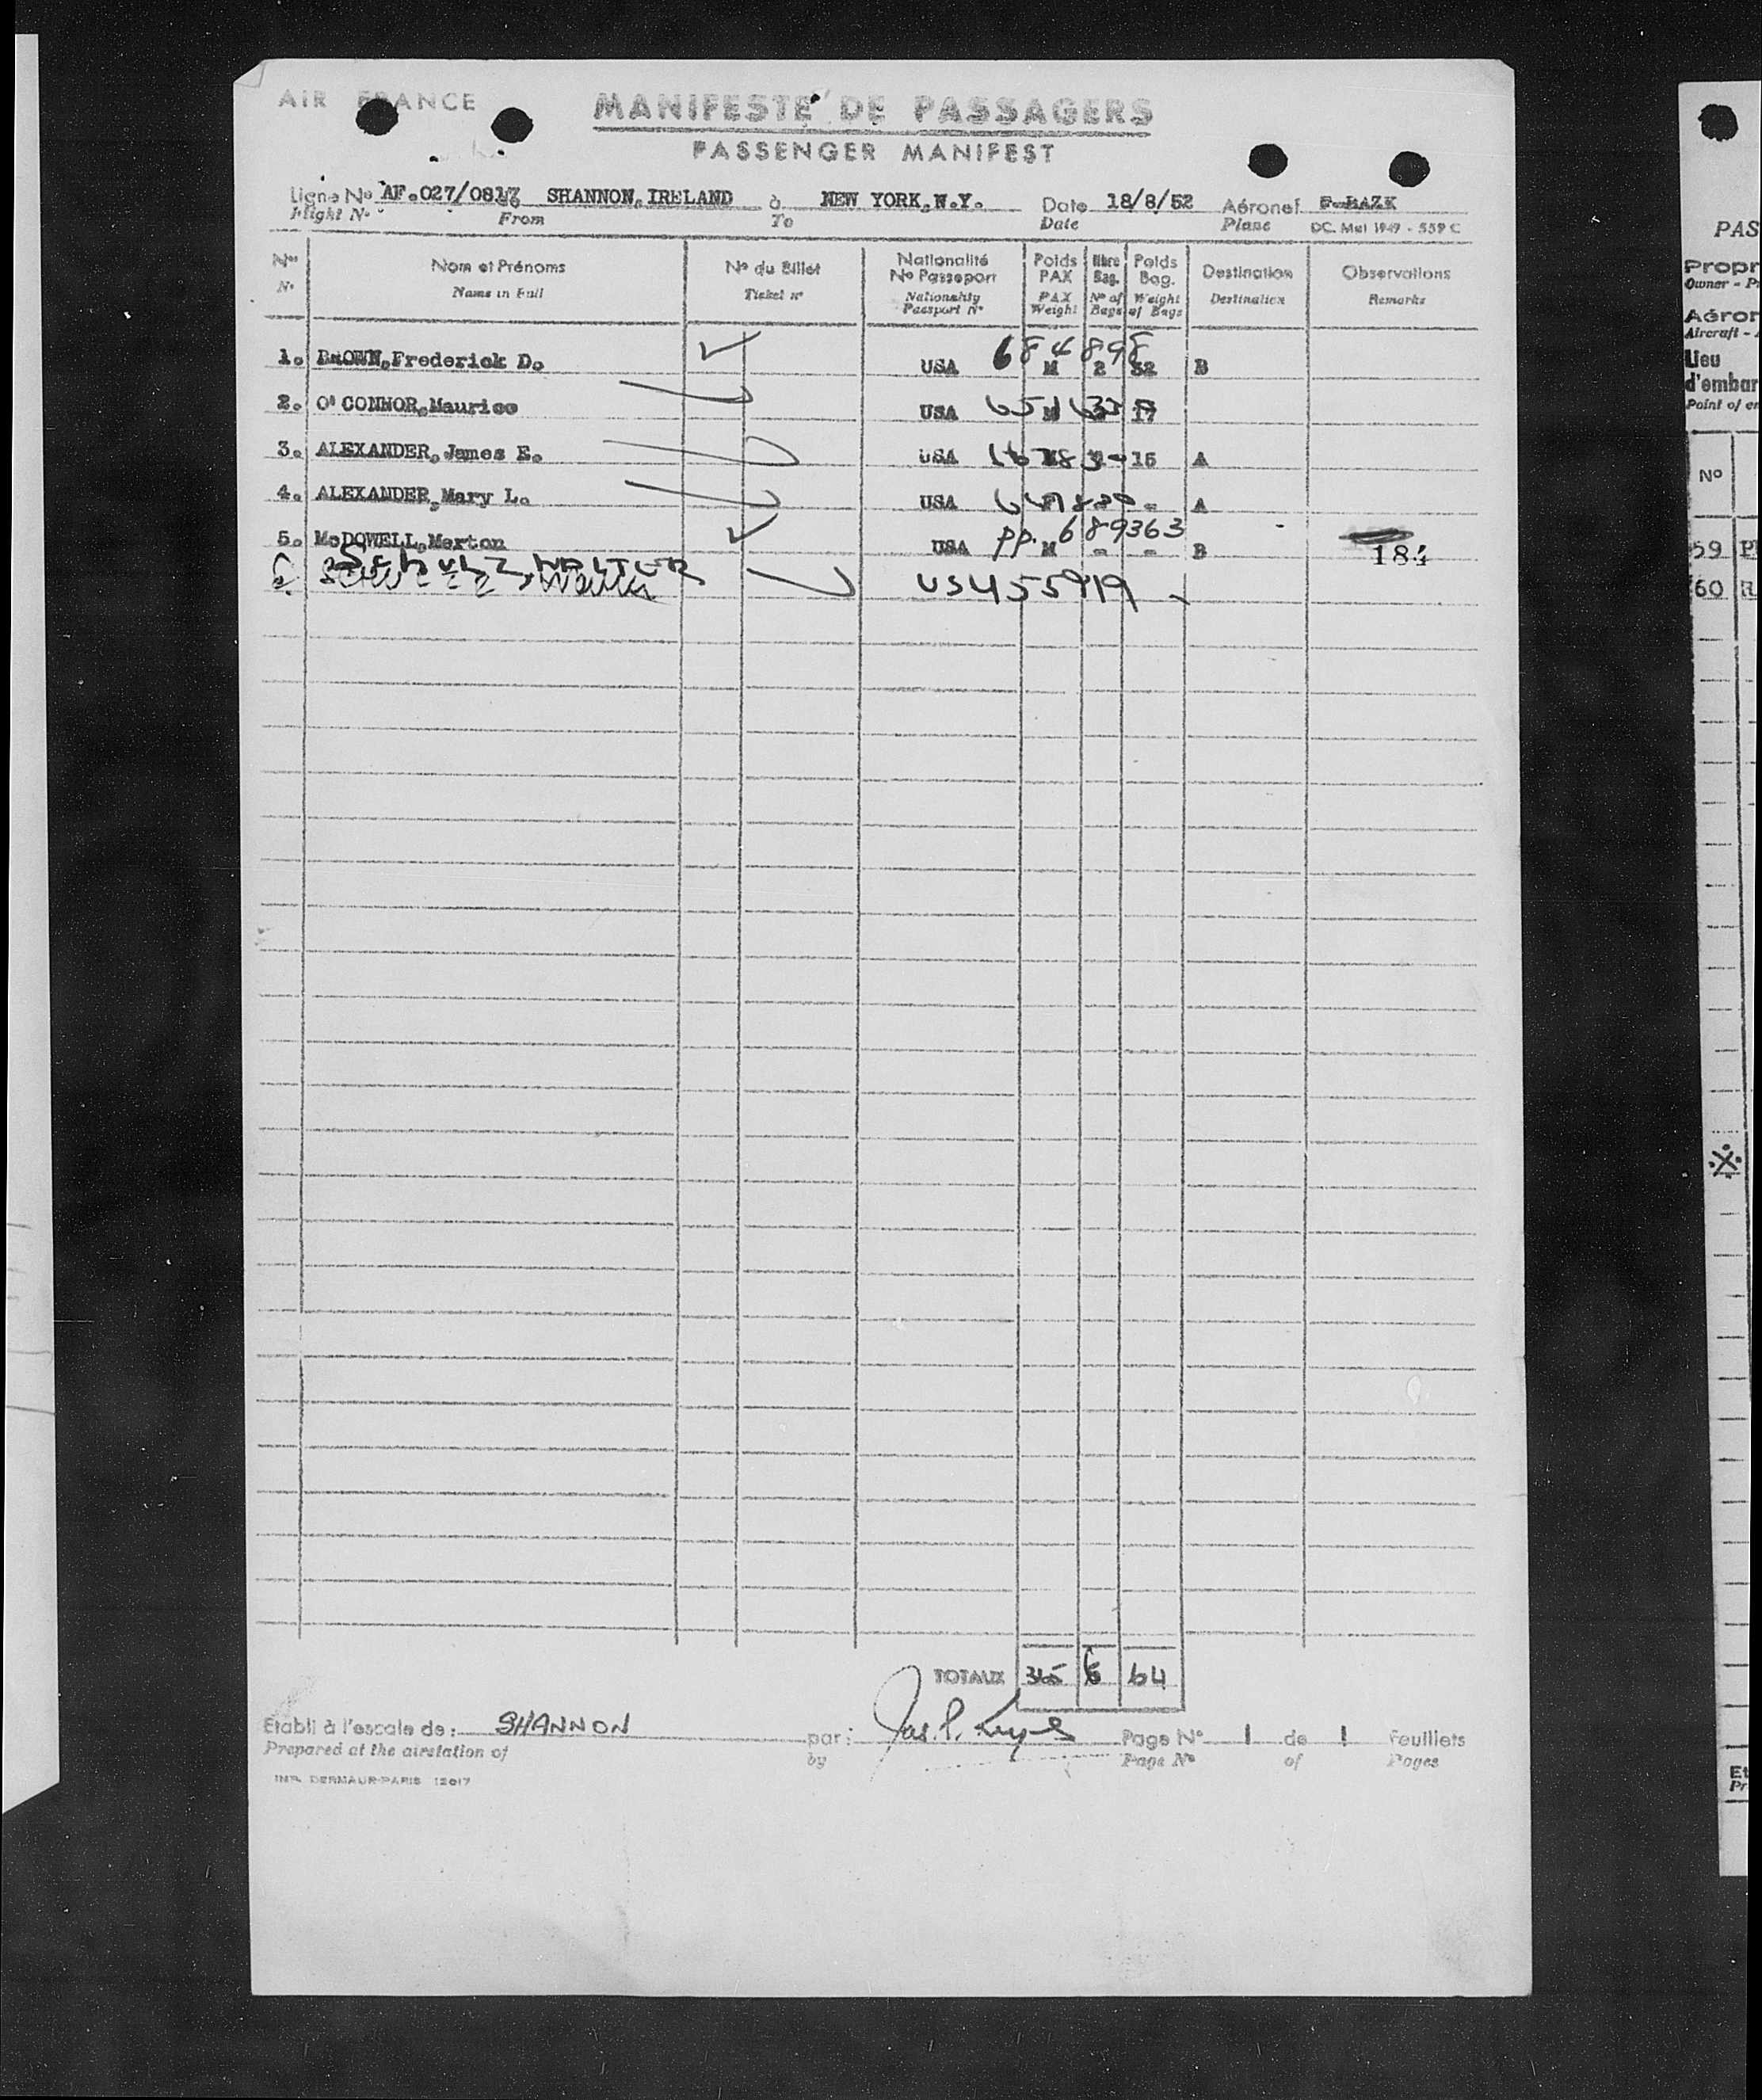 AIR FRANCE
MANIFESTE DE PASSAGERS
PASSENGER MANIFEST
Ligne No AF.027/0817 SHANNON,IRELAND à NEW YORK,N.Y. Date 18/8/52 Aéronef F-BAZK
Flight No From To Date Plane DC. Mai 1949 - 559 C
Nos Nom et Prénoms No du Billet Nationalité No Passeport Poids PAX Nbre Bag. Poids Bag. Destination Observations
No Name in Full Ticket no Nationality Passport No PAX Weight No of Bags Weight of Bags Destination Remarks
1. BROWN,Frederick D. USA 684898 M 2 32 B
2. O'CONNOR,Maurice USA M 17
3. ALEXANDER,James E. USA 15 A
4. ALEXANDER,Mary L. USA - A
5. McDOWELL,Merton USA pp. 689363 M - - B 184
6. SCHULZ, WALTER
US 455919
TOTAUX 345 6 64
Etabli à l'escale de: SHANNON par: Jas. P. Page No 1 de 1 Feuillets
Prepared at the airstation of by Page No of Pages
IMP. DERMAUR-PARIS 12617
PAS
Propr
Owner - P
Aéron
Aircraft -
Lieu
d'embar
Point of em
No
59 P
60
Et
Pr